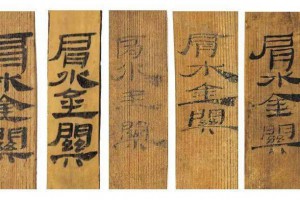 肩水金關
肩水金關
肩水金關
肩水金關
肩水金關